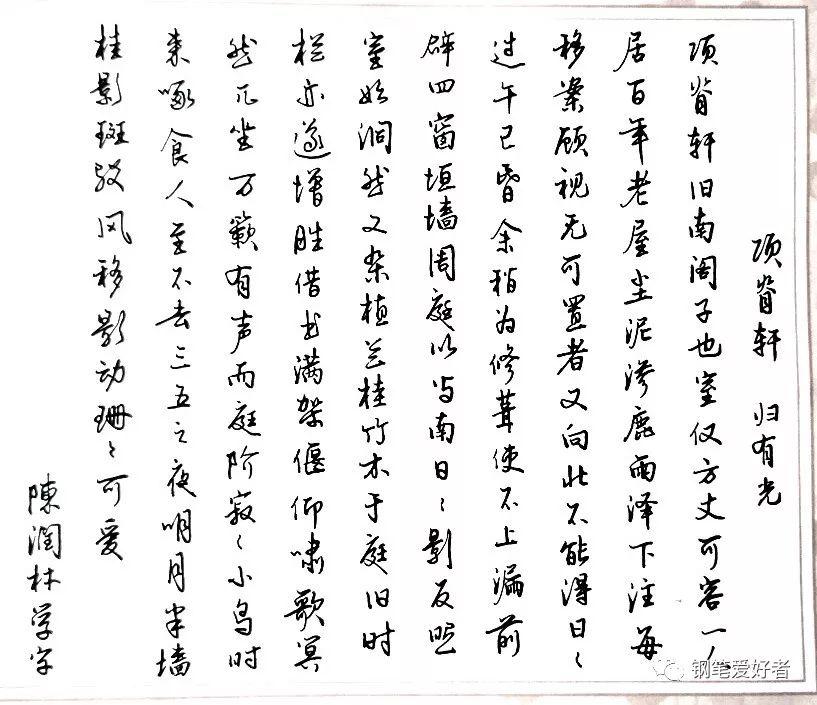 项脊轩 归有光
项脊轩旧南阁子也室仅方丈可容一人
居百年老屋尘泥渗鹿雨泽下注每
移案顾视无可置者又向北不能得日〻
过午已昏余稍为修葺使不上漏前
辟四窗垣墙周庭以当南日〻影反照
室始洞然又杂植兰桂竹木于庭旧时
栏亦遂增胜借书满架偃仰啸歌冥
然兀坐万籁有声而庭阶寂〻小鸟时
来啄食人至不去三五之夜明月半墙
桂影斑驳风移影动珊〻可爱
陳润林学字
钢笔爱好者